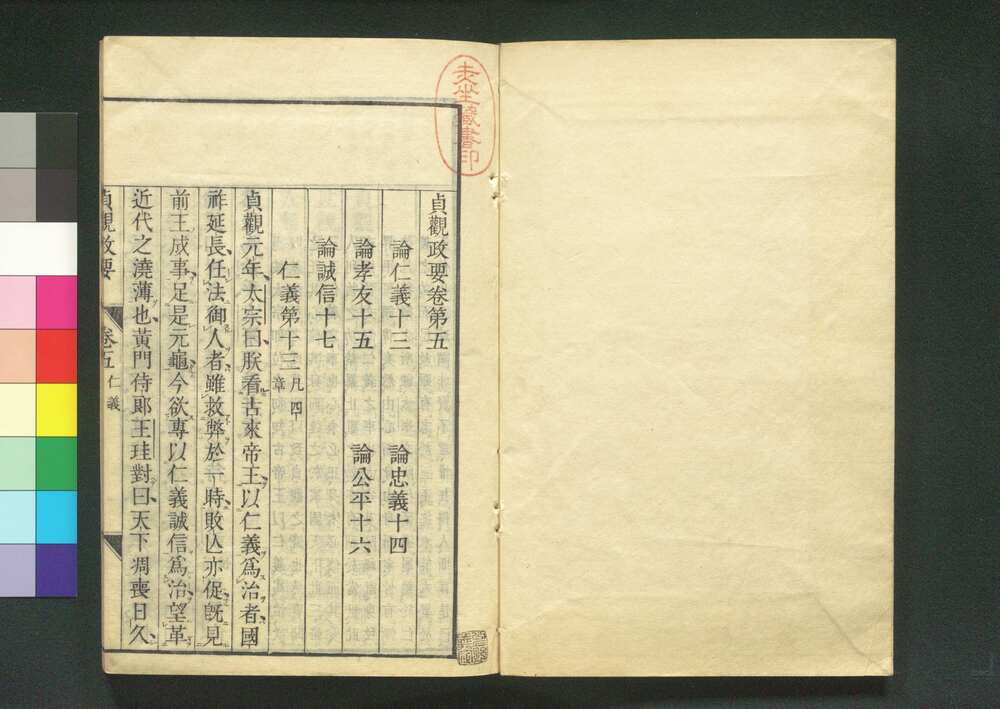 貞觀政要卷第五
論仁義十三　論忠義十四
論孝友十五　論公平十六
論誠信十七
仁義第十三 凡四章
貞觀元年太宗曰朕看古來帝王以仁義爲治者國
祚延長任法御人者雖救弊於一時敗亡亦促旣見
前王成事足是元龜今欲專以仁義誠信爲治望革
近代之澆薄也黃門侍郞王珪對曰天下凋喪日久
貞觀政要　卷五 仁義
藏書印